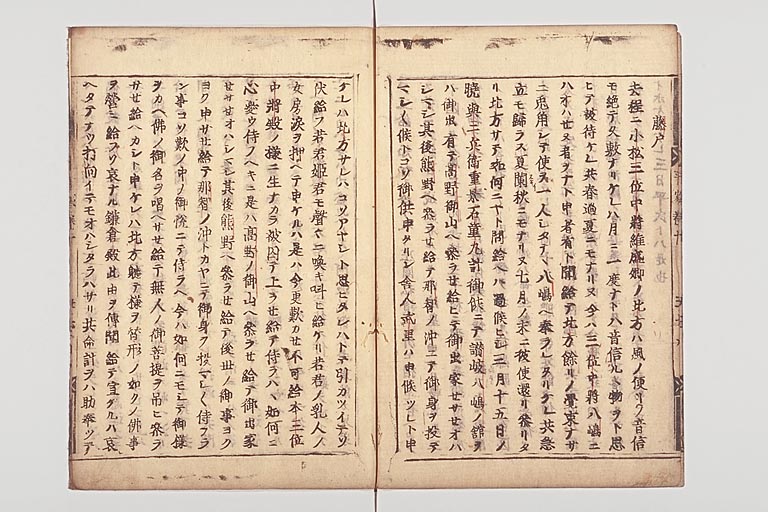 藤戸
去程ニ小松三位中將維盛卿ノ北方ハ風ノ便リノ音信
モ絶テ久敷ナリケレハ月ニ一度ナトハ音信ルヽ物ヲト思
ヒテ被待ケレ共春過夏ニモナリヌ今ハ三位中將八嶋ニ
ハオハセヌ者ヲナト申者有ト聞給テ北方餘リノ學束ナサ
ニ兎角シテ使ヲ一人シタテヽ八嶋ヘ奉ラレタリケレ共急
立モ歸ラス夏闌秋ニモナリヌ七月ノ末ニ彼使還リ參リタ
リ北方サテ如何ニヤト問給ヘハ過候ヒシ三月十五日ノ
曉與三兵衛重景石童丸計御供ニテ讃岐八嶋ノ舘ヲ
ハ御出有テ高野御山ヘ參ラセ給ヒテ御出家セサセオハ
シマシ其後熊野ヘ參ラセ給テ那智ノ沖ニテ御身ヲ投テ
マシヽ候トコソ御供申タリシ舍人武里ハ申候ツレト申
ケレハ北方サレハコソアヤシト思ヒタレハトテ引カツイテソ
伏給フ若君姫君モ聲々ニ喚キ叫ヒ給ケリ若君ノ乳人ノ
女房涙ヲ押ヘテ申ケルハ是ハ今更歎カセ不可給本三位
中將殿ノ樣ニ生ナカラ被囚テ上ラセ給テ侍ラハヽ如何ニ
心憂ウ侍ノヘキニ是ハ高野ノ御山ヘ參ラセ給テ御出家
セサセオハシマシ其後熊野ヘ參ラセ給テ後世ノ御事ヨク
ヨク申サセ給テ那智ノ沖トカヤニテ御身ヲ投マシヽ侍フラ
ン事コソ歎ノ中ノ御悦ニテ侍ラヘ今ハ如何ニモシテ御樣
ヲカヘ佛ノ御名ヲ唱ヘサセ給テ無人ノ御菩提ヲ吊ヒ參ラ
サセ給ヘカシト申ケレハ北方軈テ樣ヲ替形ノ如クノ佛事
ヲ營ミ給フソ哀ナル鎌倉殿此由ヲ傳聞給テ宣ケルハ哀
ヘタテナク打向イテモオハシタラハサリ共命計ヲハ助奉ツテ